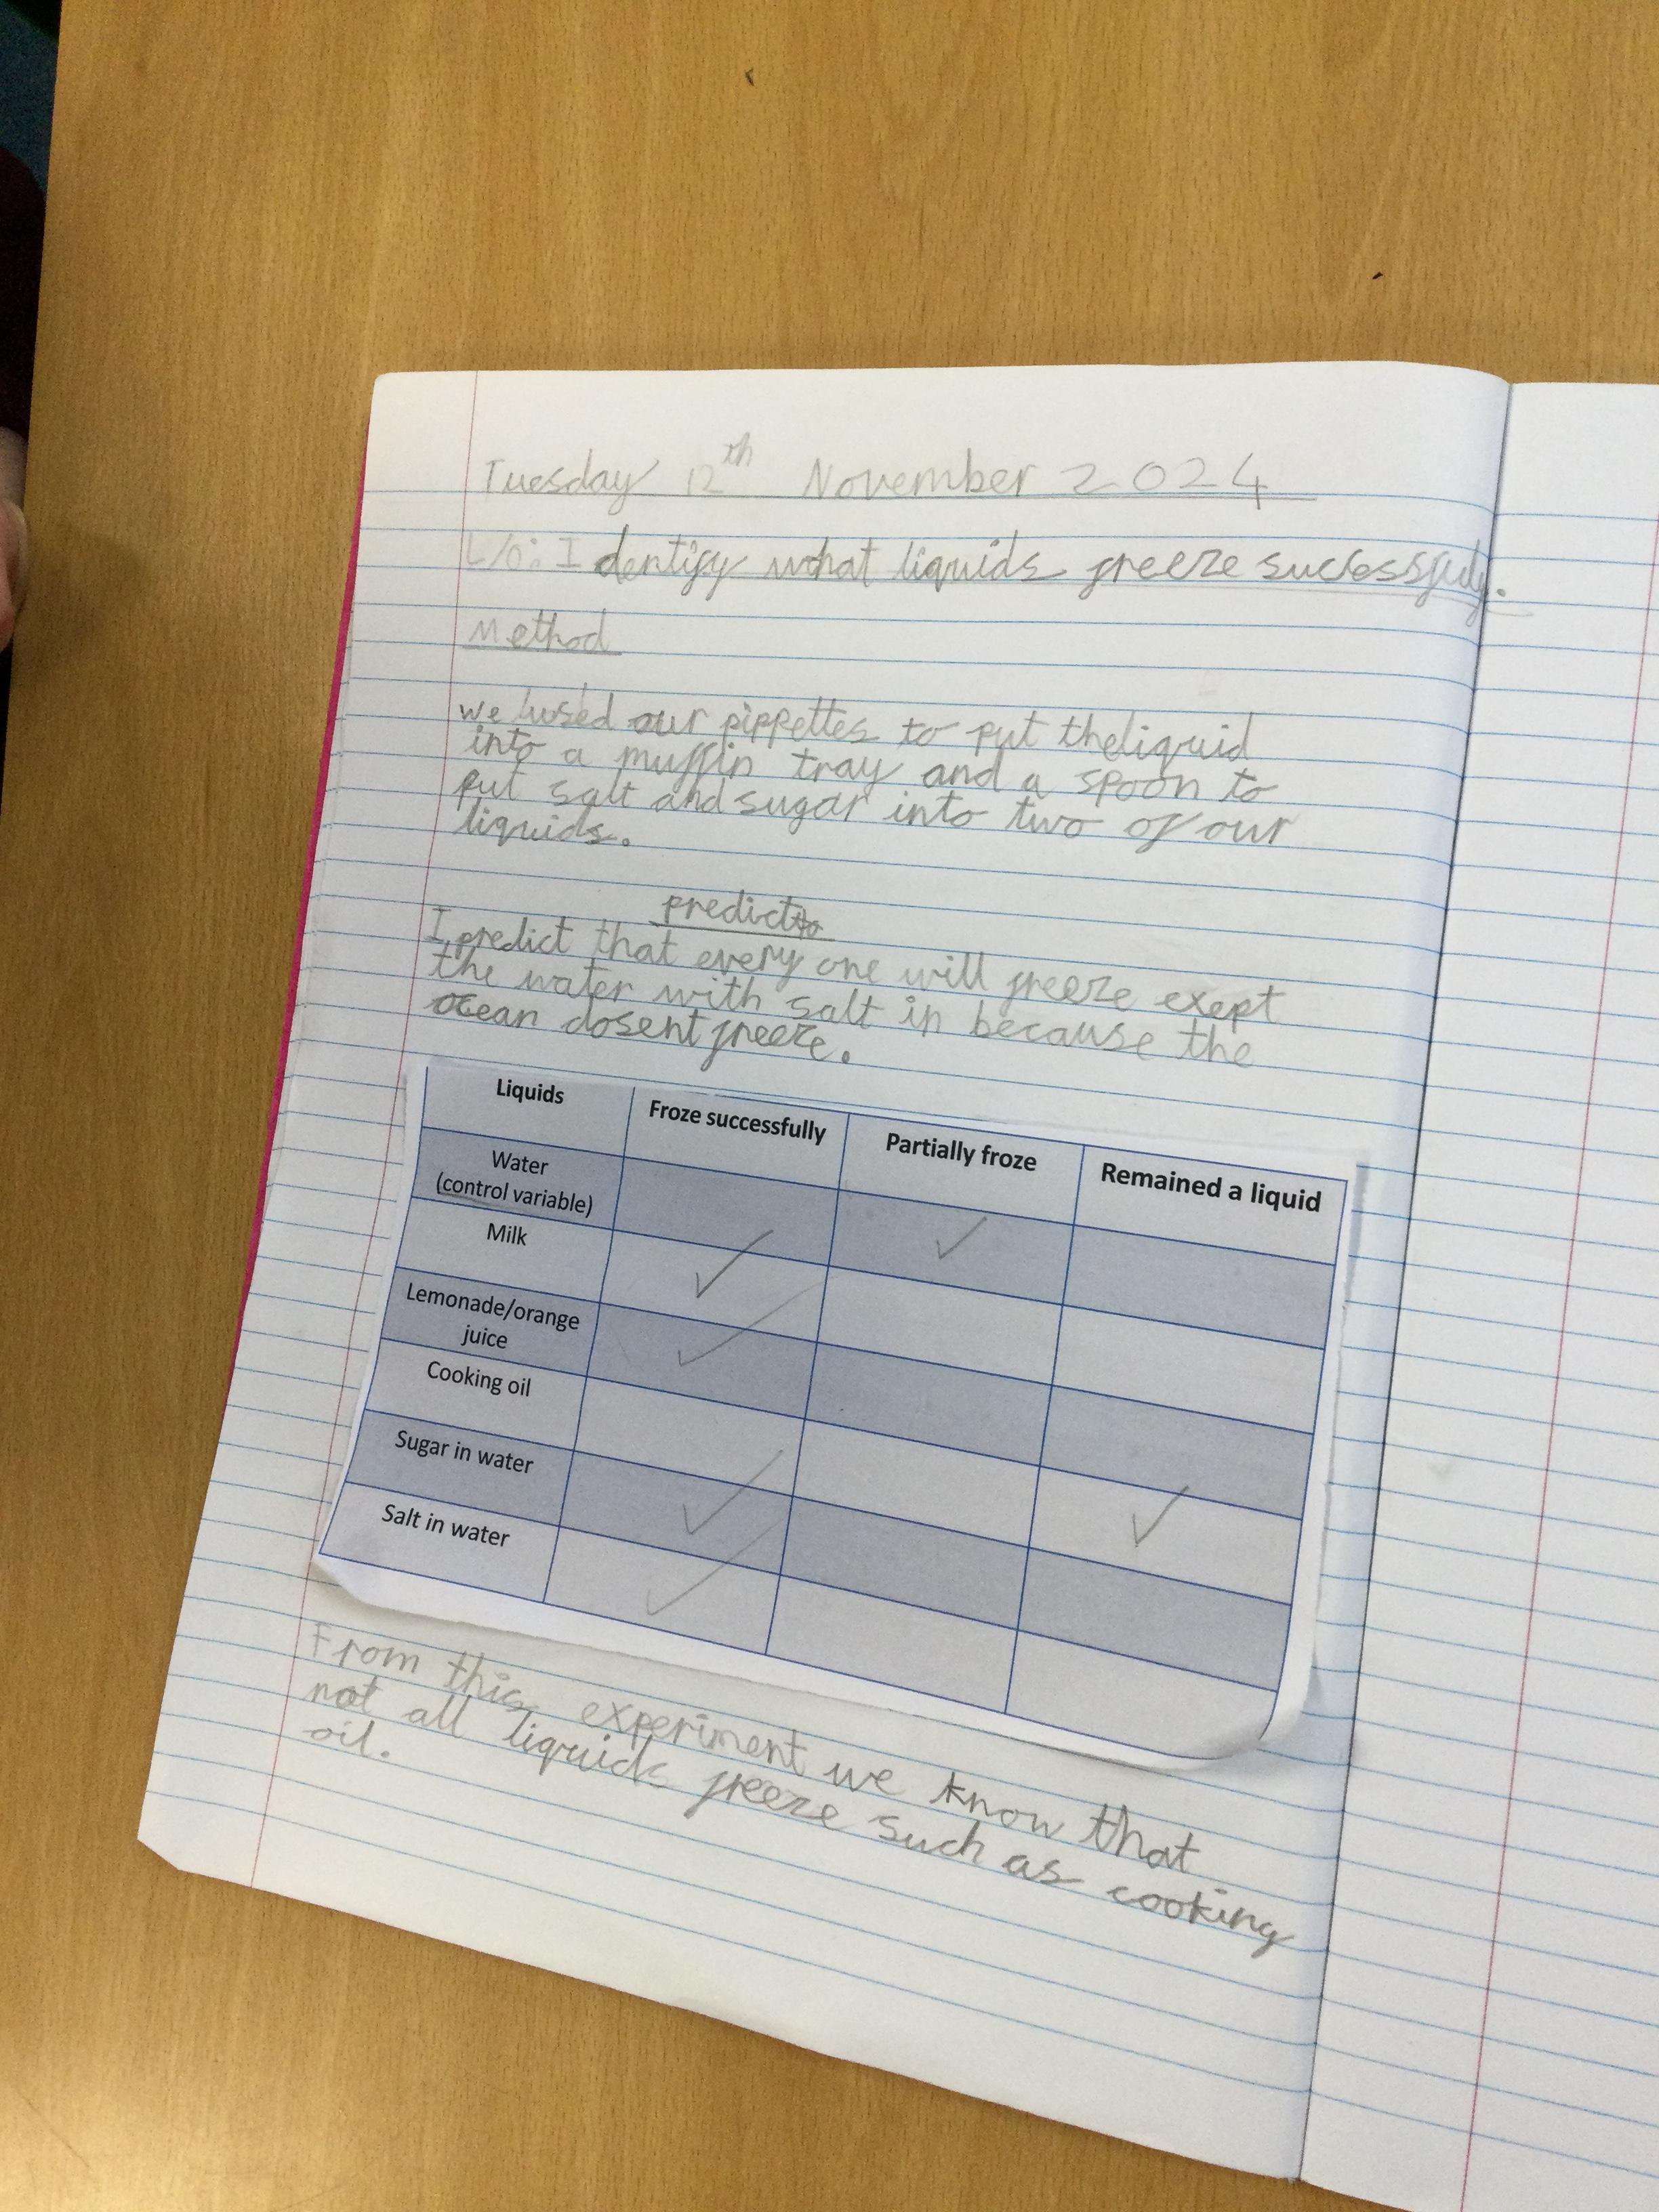 Tuesday 12th November 2024
L/O: Identify what liquids freeze successfuly.
Method
we used our pippettes to put the liquid
into a muffin tray and a spoon to
put salt and sugar into two of our
liquids.
predict
I predict that every one will freeze exept
the water with salt in because the
ocean dosent freeze.
Liquids Froze successfully Partially froze Remained a liquid
Water
(control variable) ✓
Milk ✓
Lemonade/orange
juice ✓
Cooking oil ✓
Sugar in water ✓
Salt in water ✓
From this experiment we know that
not all liquids freeze such as cooking
oil.